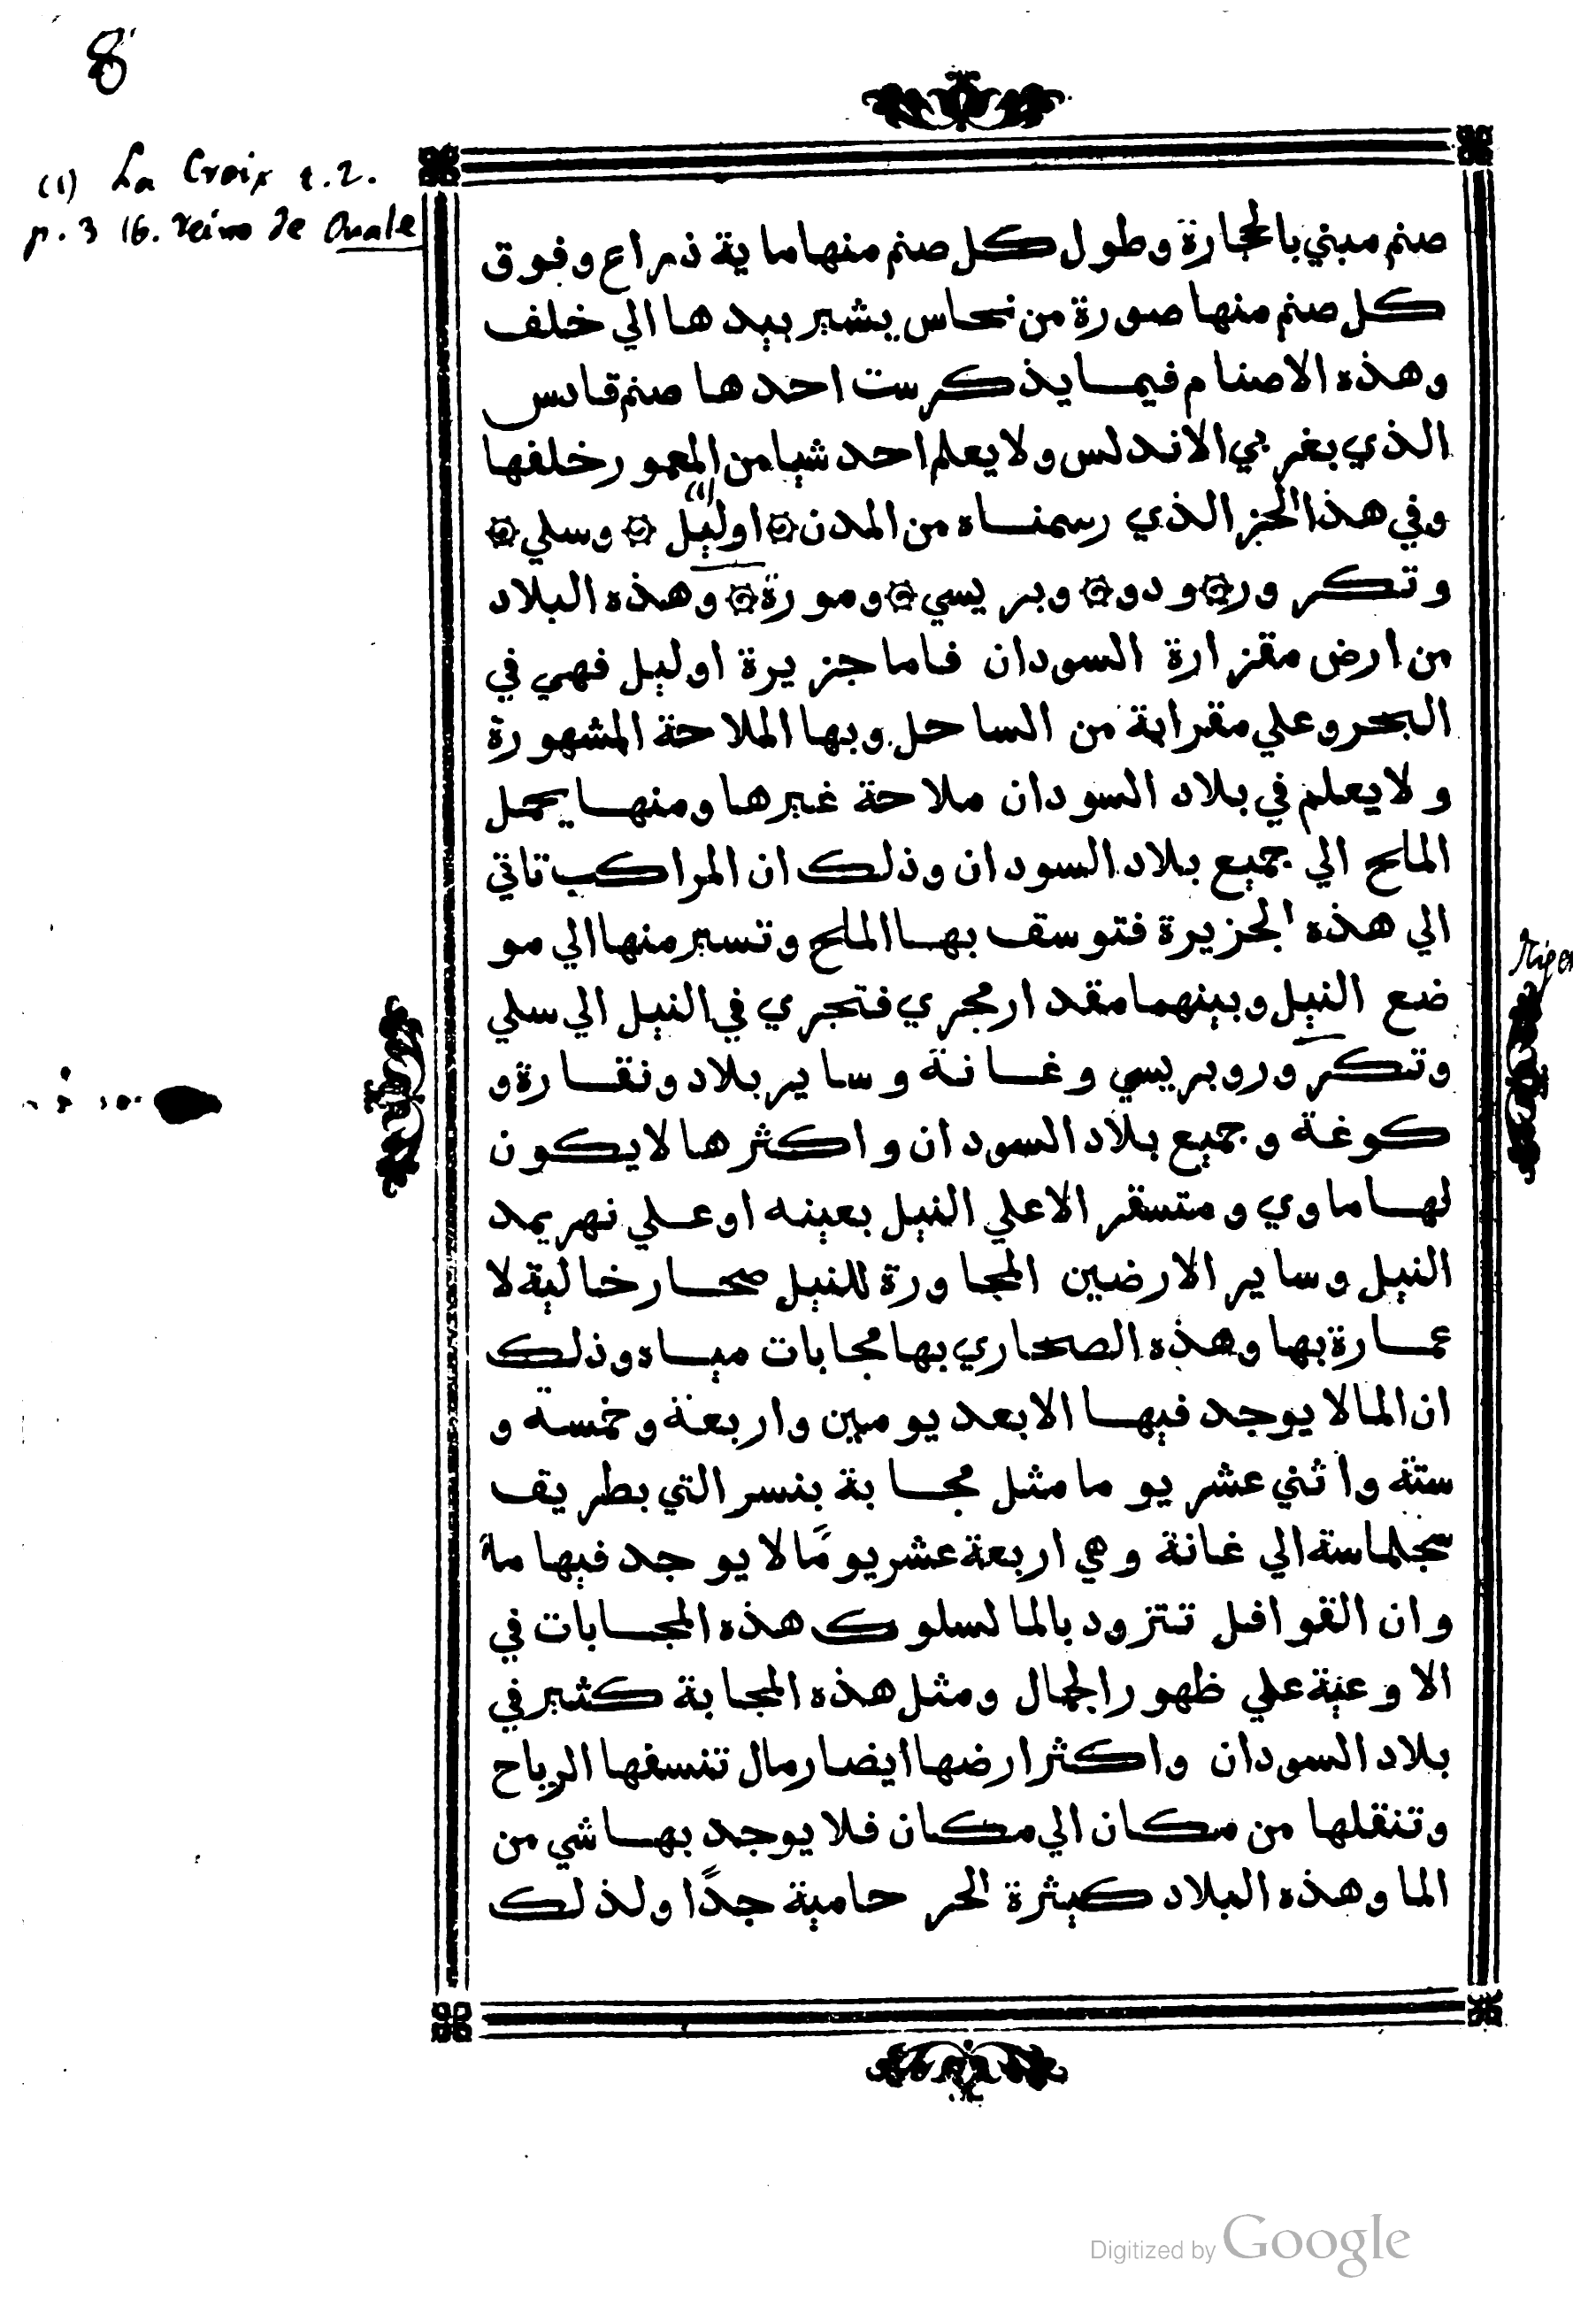 8
(1) La Croix t. 2.
p. 3 16. reino de Ouale
صنم مبني بالحجارة وطول كل صنم منها ماية ذراع وفوق
كل صنم منها صورة من نحاس يشير بيدها الي خلف
وهذه الاصنام فيما يذكر ست احدها صنم قادس
الذي بغربي الاندلس ولا يعلم احد شيا من المعمور خلفها
وفي هذا الجز الذي رسمناه من المدن ۞ اوليل (1) ۞ وسلي ۞
وتكرور ۞ ودو ۞ وبريسي ۞ ومورة ۞ وهذه البلاد
من ارض مقزارة السودان فاما جزيرة اوليل فهي في
البحر وعلي مقرابة من الساحل وبها الملاحة المشهورة
ولا يعلم في بلاد السودان ملاحة غيرها ومنها يحمل
الملح الي جميع بلاد السودان وذلك ان المراكب تاتي
الي هذه الجزيرة فتوسق بها الملح وتسير منها الي مو
ضع النيل وبينهما مقدار مجري فتجري في النيل الي سلي
Niger
وتكرور وبريسي وغانة وساير بلاد ونقارة و
كوغة وجميع بلاد السودان واكثرها لا يكون
لها ماوي ومتسقر الا علي النيل بعينه او علي نهر يمد
النيل وساير الارضين المجاورة للنيل صحار خالية لا
عمارة بها وهذه الصحاري بها مجابات مياه وذلك
ان الما لا يوجد فيها الا بعد يومين واربعة وخمسة و
ستة واثني عشر يوما مثل مجابة ينسر التي بطريق
سجلماسة الي غانة وهي اربعة عشر يومًا لا يوجد فيها ما
وان القوافل تتزود بالما لسلوك هذه المجابات في
الاوعية علي ظهور الجمال ومثل هذه المجابة كثير في
بلاد السودان واكثر ارضها ايضا رمال تنسفها الرياح
وتنقلها من مكان الي مكان فلا يوجد بها شي من
الما وهذه البلاد كيثرة الحر حامية جدًا ولذلك
Digitized by Google